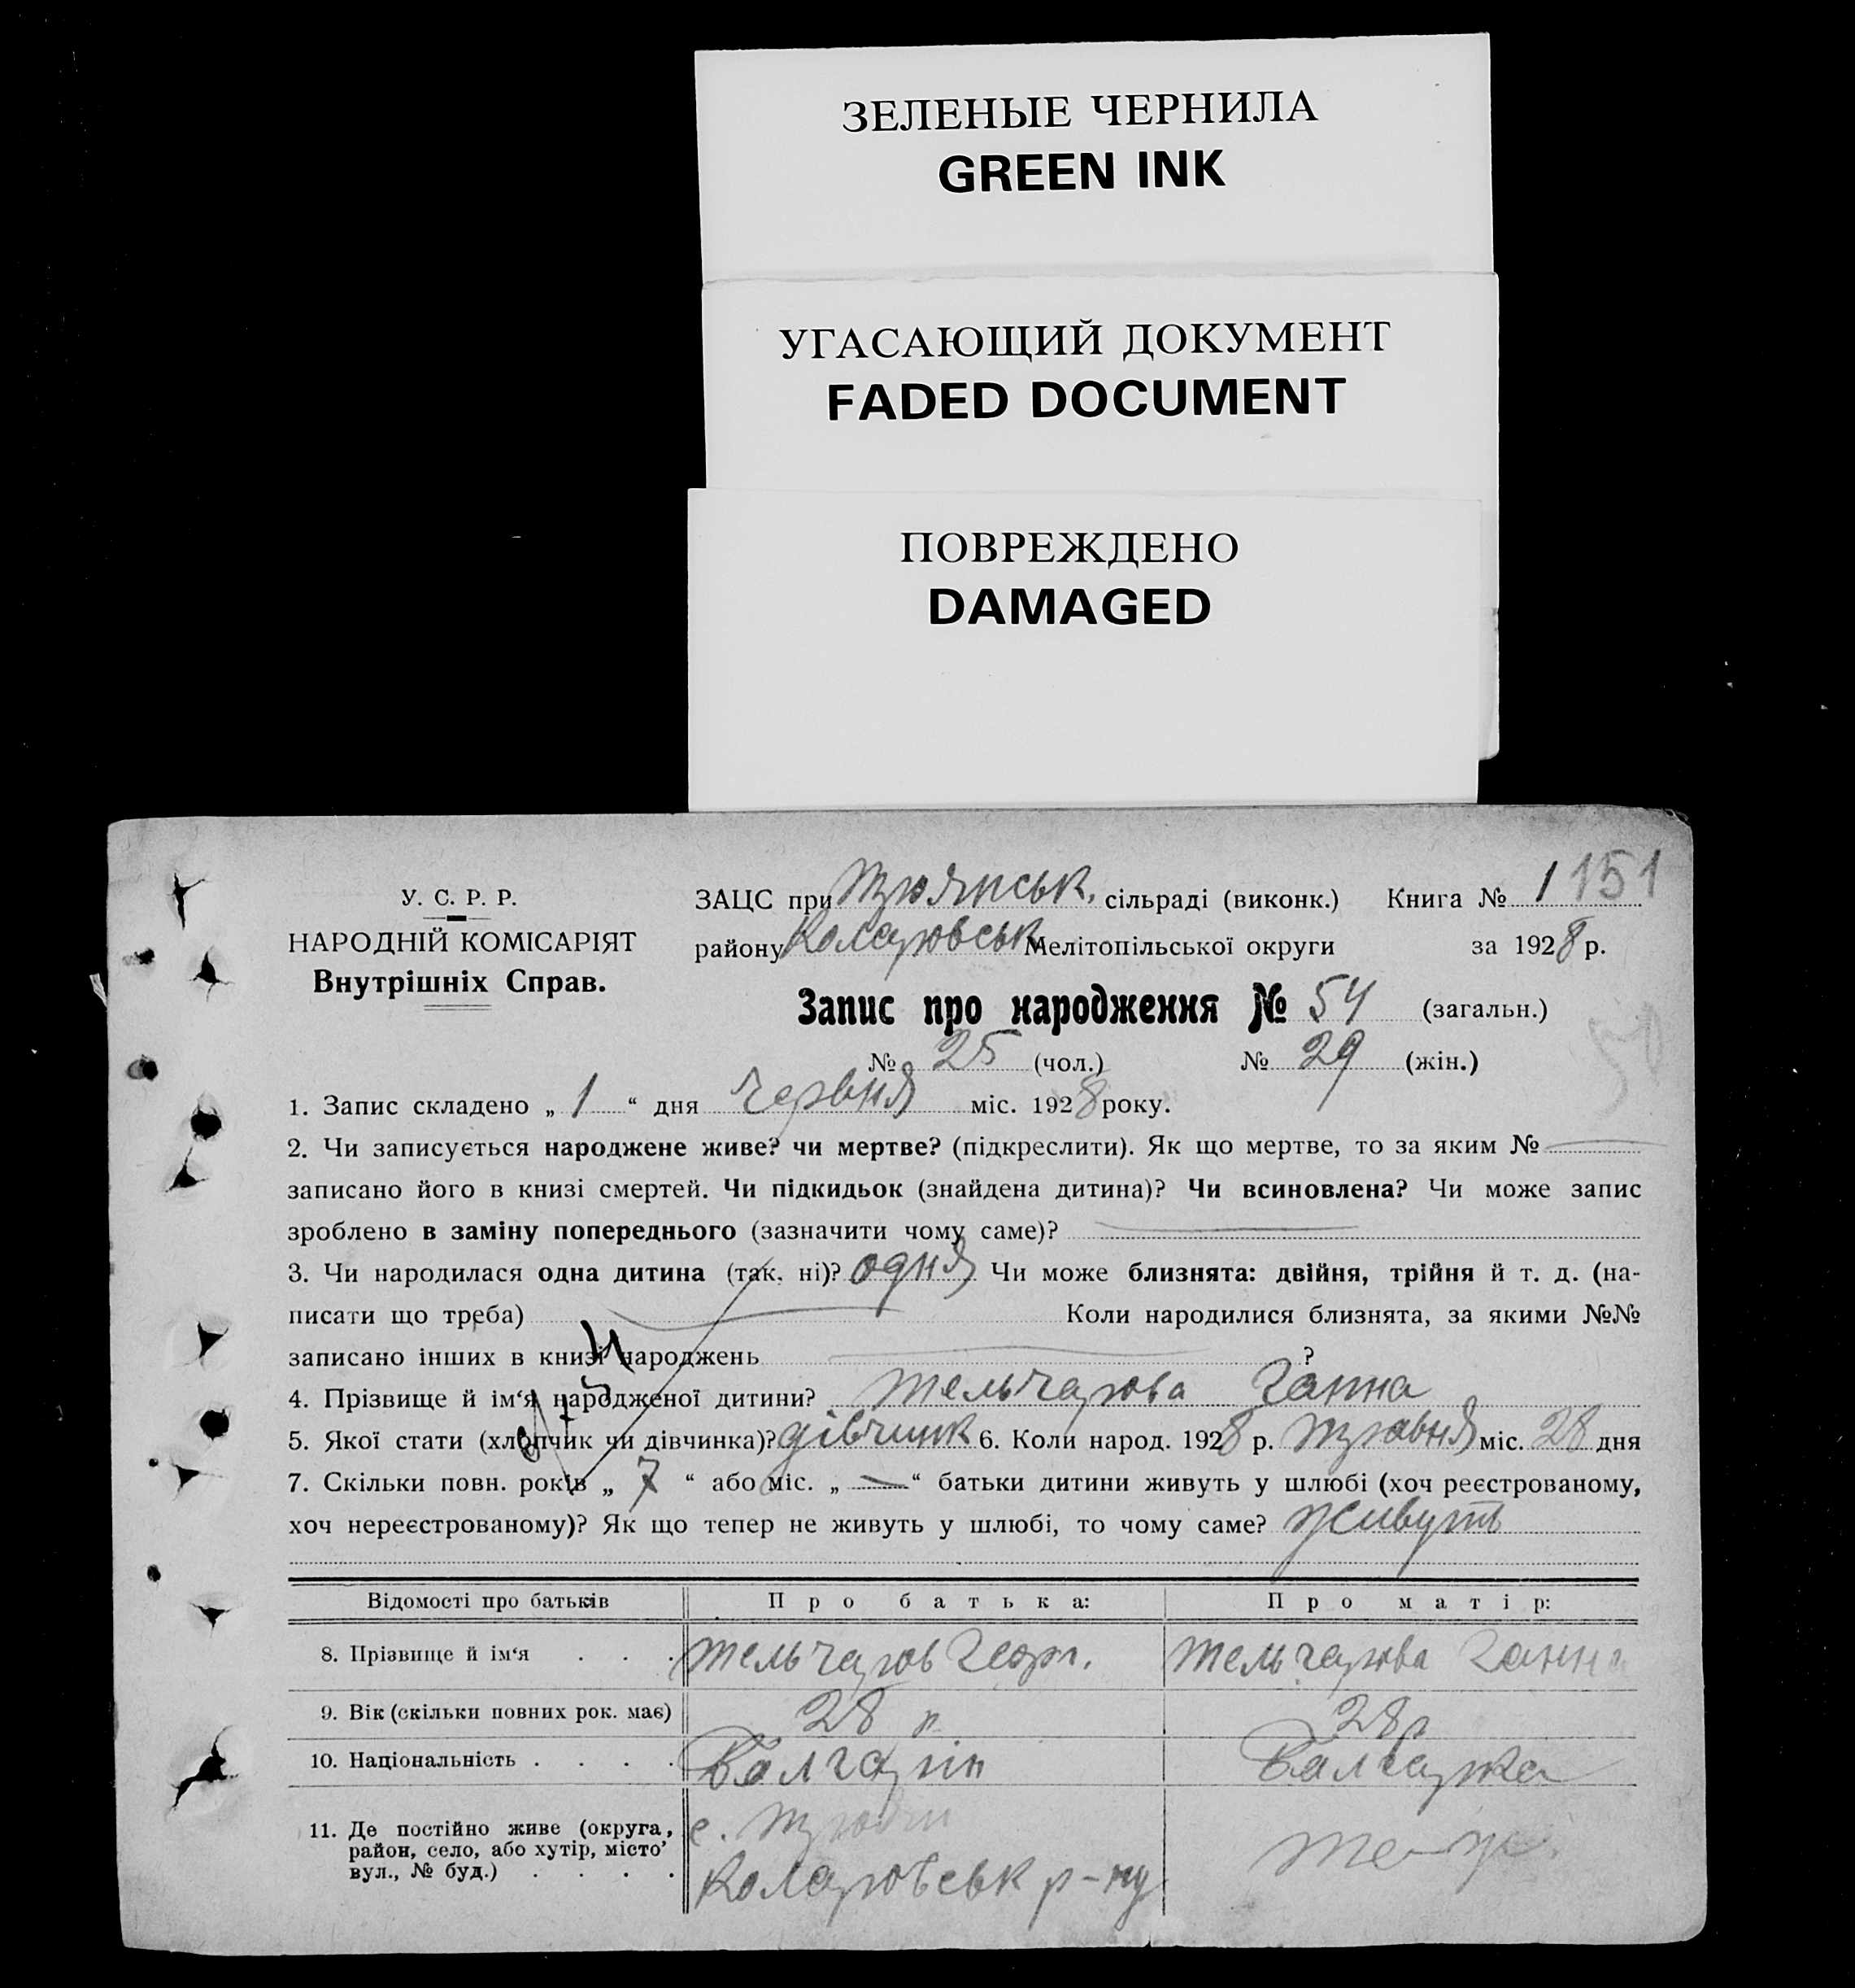 ЗЕЛЕНЫЕ ЧЕРНИЛА
GREEN INK
УГАСАЮЩИЙ ДОКУМЕНТ
FADED DOCUMENT
ПОВРЕЖДЕНО
DAMAGED
У. С. Р. Р.
НАРОДНІЙ КОМІСАРІЯТ
Внутрішніх Справ.
ЗАЦС при Троянськ. сільраді (виконк.) Книга № 1 151
району Коларовськ Мелітопільської округи за 1928 р.
Запис про народження № 54 (загальн.)
№ 25 (чол.) № 29 (жін.)
1. Запис складено „ 1 “ дня Червня міс. 1928 року.
2. Чи записується народжене живе? чи мертве? (підкреслити). Як що мертве, то за яким №
записано його в книзі смертей. Чи підкидьок (знайдена дитина)? Чи всиновлена? Чи може запис
зроблено в заміну попереднього (зазначити чому саме)?
3. Чи народилася одна дитина (так, ні)? одня Чи може близнята: двійня, трійня й т. д. (на-
писати що треба) Коли народилися близнята, за якими №№
записано інших в книзі народжень ?
4. Прізвище й ім‘я народженої дитини? Тельчарова Ганна
5. Якої стати (хлопчик чи дівчинка)? дівчинк 6. Коли народ. 1928 р. травня міс. 28 дня
7. Скільки повн. років „ 7 “ або міс. „ — “ батьки дитини живуть у шлюбі (хоч реєстрованому,
хоч нереєстрованому)? Як що тепер не живуть у шлюбі, то чому саме? живуть
Відомості про батьків Про батька: Про матір:
8. Прізвище й ім‘я . . . Тельчаров Георг. Тельчарова Ганна
9. Вік (скільки повних рок. має) 28 р 28 р
10. Національність . . . . Болгарін Балгарка
11. Де постійно живе (округа, с. Трояни
район, село, або хутір, місто’
вул., № буд.) . . . . Коларовськ р-ну